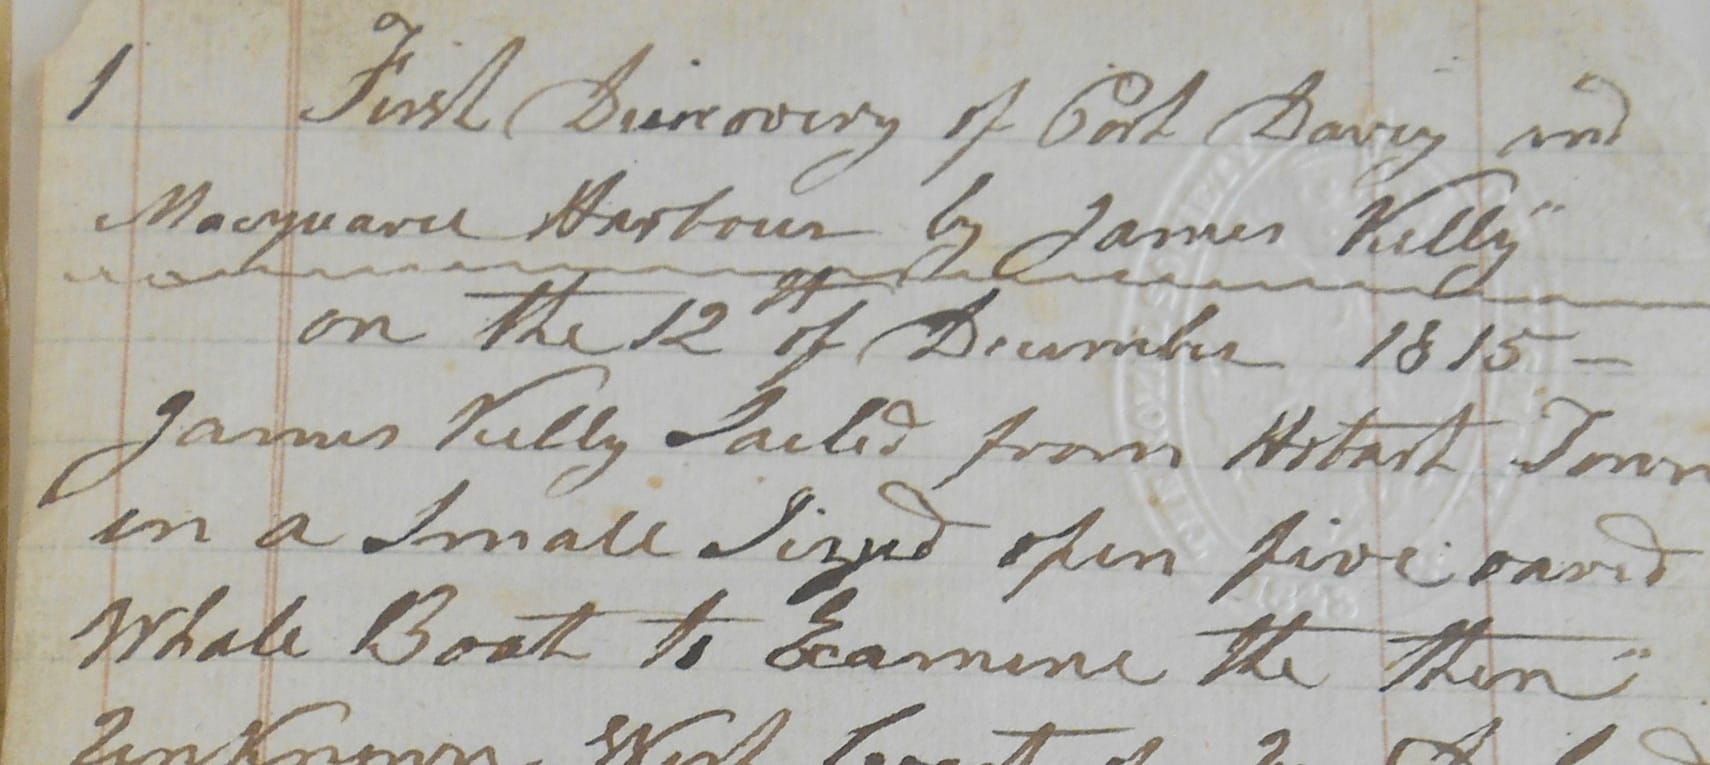 1 First Discovery of Port Davey and
Macquarie Harbour by James Kelly"
on the 12th of December 1815 –
James Kelly Sailed from Hobart Town
in a Small Sized open five oared
Whale Boat to Examine the then"
Unknown West Coast of